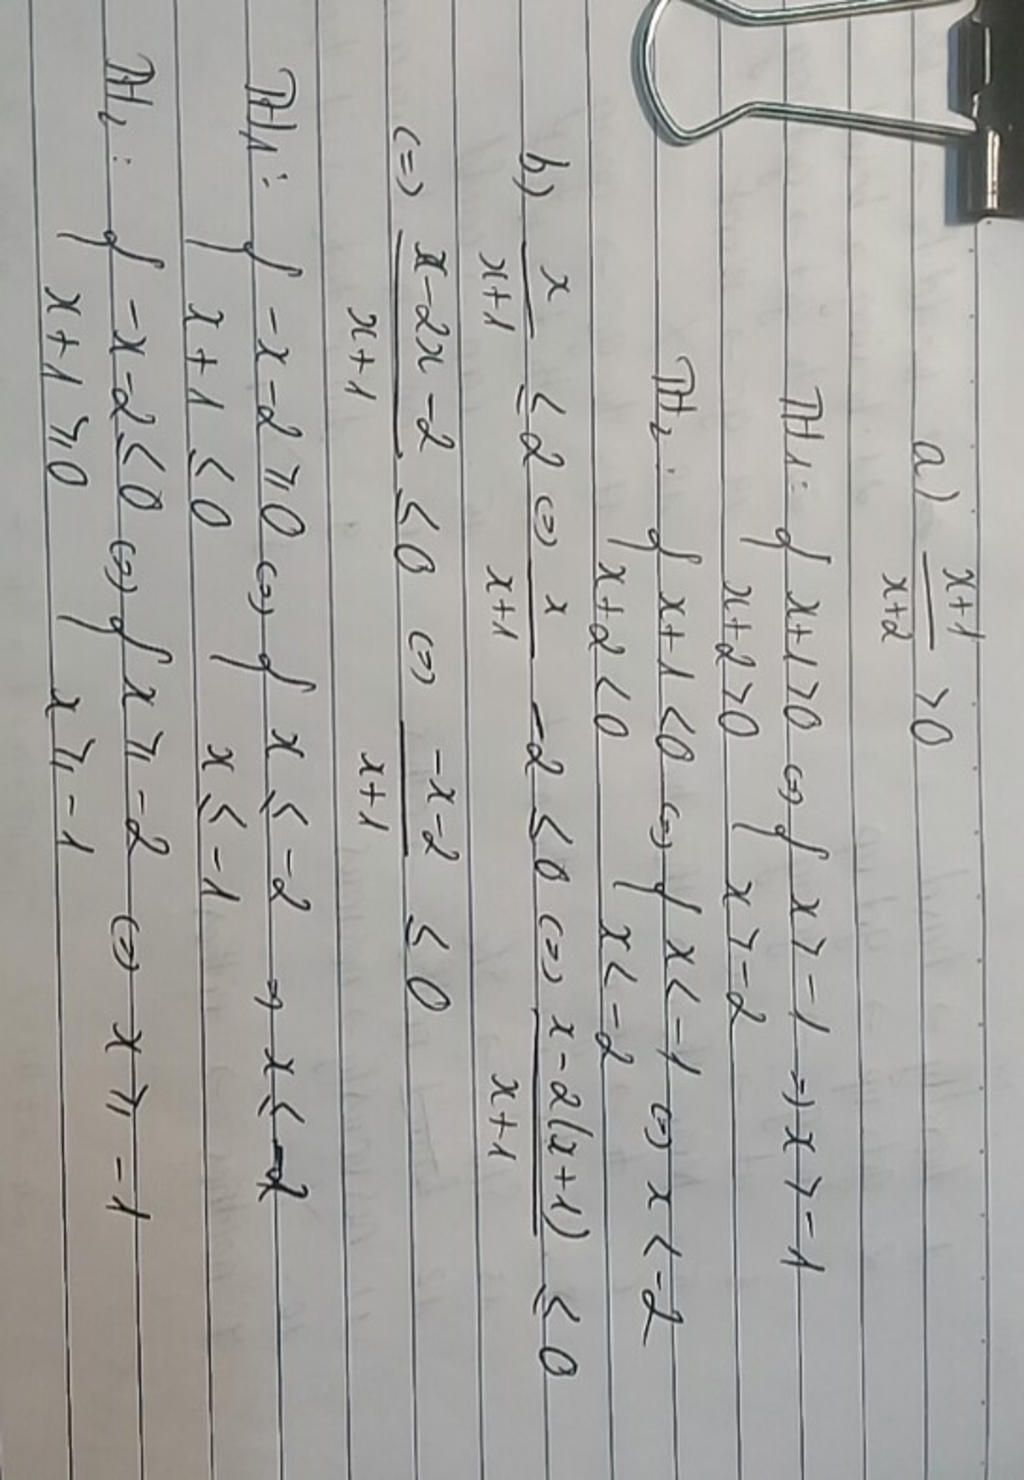 a) x+1/x+2 > 0
TH1: { x+1>0 <=> { x > -1 => x > -1
x+2>0 x > -2
TH2: { x+1 < 0 <=> { x < -1 <=> x < -2
x+2 < 0 x < -2
b) x/x+1 ≤ 2 <=> x/x+1 - 2 ≤ 0 <=> x-2(x+1)/x+1 ≤ 0
<=> x-2x-2/x+1 ≤ 0 <=> -x-2/x+1 ≤ 0
TH1: { -x-2 ≥ 0 <=> { x ≤ -2 => x ≤ -2
x+1 ≤ 0 x ≤ -1
TH2: { -x-2 ≤ 0 <=> { x ≥ -2 <=> x ≥ -1
x+1 ≥ 0 x ≥ -1